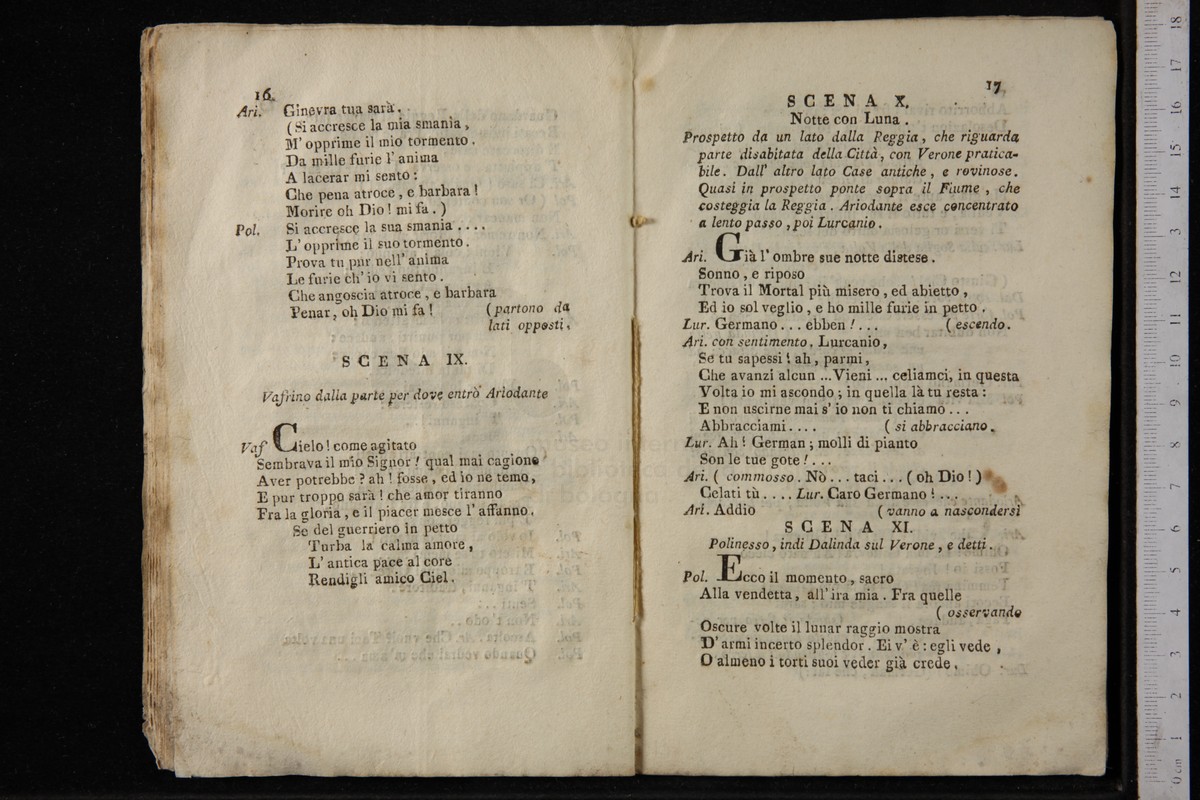 16.
Ari. Ginevra tua sarà.
(Si accresce la mia smania,
M' opprime il mio tormento.
Da mille furie l' anima
A lacerar mi sento:
Che pena atroce, e barbara!
Morire oh Dio! mi fa.)
Pol. Si accresce la sua smania....
L' opprime il suo tormento.
Prova tu pur nell' anima
Le furie ch' io vi sento.
Che angoscia atroce, e barbara
Penar, oh Dio mi fa! (partono da
lati opposti.
SCENA IX.
Vafrino dalla parte per dove entrò Ariodante
Vaf Cielo! come agitato
Sembrava il mio Signor! qual mai cagione
Aver potrebbe? ah! fosse, ed io ne temo,
E pur troppo sarà! che amor tiranno
Fra la gloria, e il piacer mesce l' affanno.
Se del guerriero in petto
Turba la calma amore,
L' antica pace al core
Rendigli amico Ciel.
17
SCENA X.
Notte con Luna.
Prospetto da un lato dalla Reggia, che riguarda
parte disabitata della Città, con Verone pratica-
bile. Dall' altro lato Case antiche, e rovinose.
Quasi in prospetto ponte sopra il Fiume, che
costeggia la Reggia. Ariodante esce concentrato
a lento passo, poi Lurcanio.
Ari. Già l' ombre sue notte distese.
Sonno, e riposo
Trova il Mortal più misero, ed abietto,
Ed io sol veglio, e ho mille furie in petto.
Lur. Germano... ebben!... (escendo.
Ari. con sentimento. Lurcanio,
Se tu sapessi! ah, parmi,
Che avanzi alcun ...Vieni... celiamci, in questa
Volta io mi ascondo; in quella là tu resta:
E non uscirne mai s' io non ti chiamo...
Abbracciami.... (si abbracciano.
Lur. Ah! German; molli di pianto
Son le tue gote!...
Ari. (commosso. Nò... taci... (oh Dio!)
Celati tù.... Lur. Caro Germano!...
Ari. Addio (vanno a nascondersi
SCENA XI.
Polinesso, indi Dalinda sul Verone, e detti.
Pol. Ecco il momento, sacro
Alla vendetta, all' ira mia. Fra quelle
(osservando
Oscure volte il lunar raggio mostra
D' armi incerto splendor. Ei v' è: egli vede,
O almeno i torti suoi veder già crede.